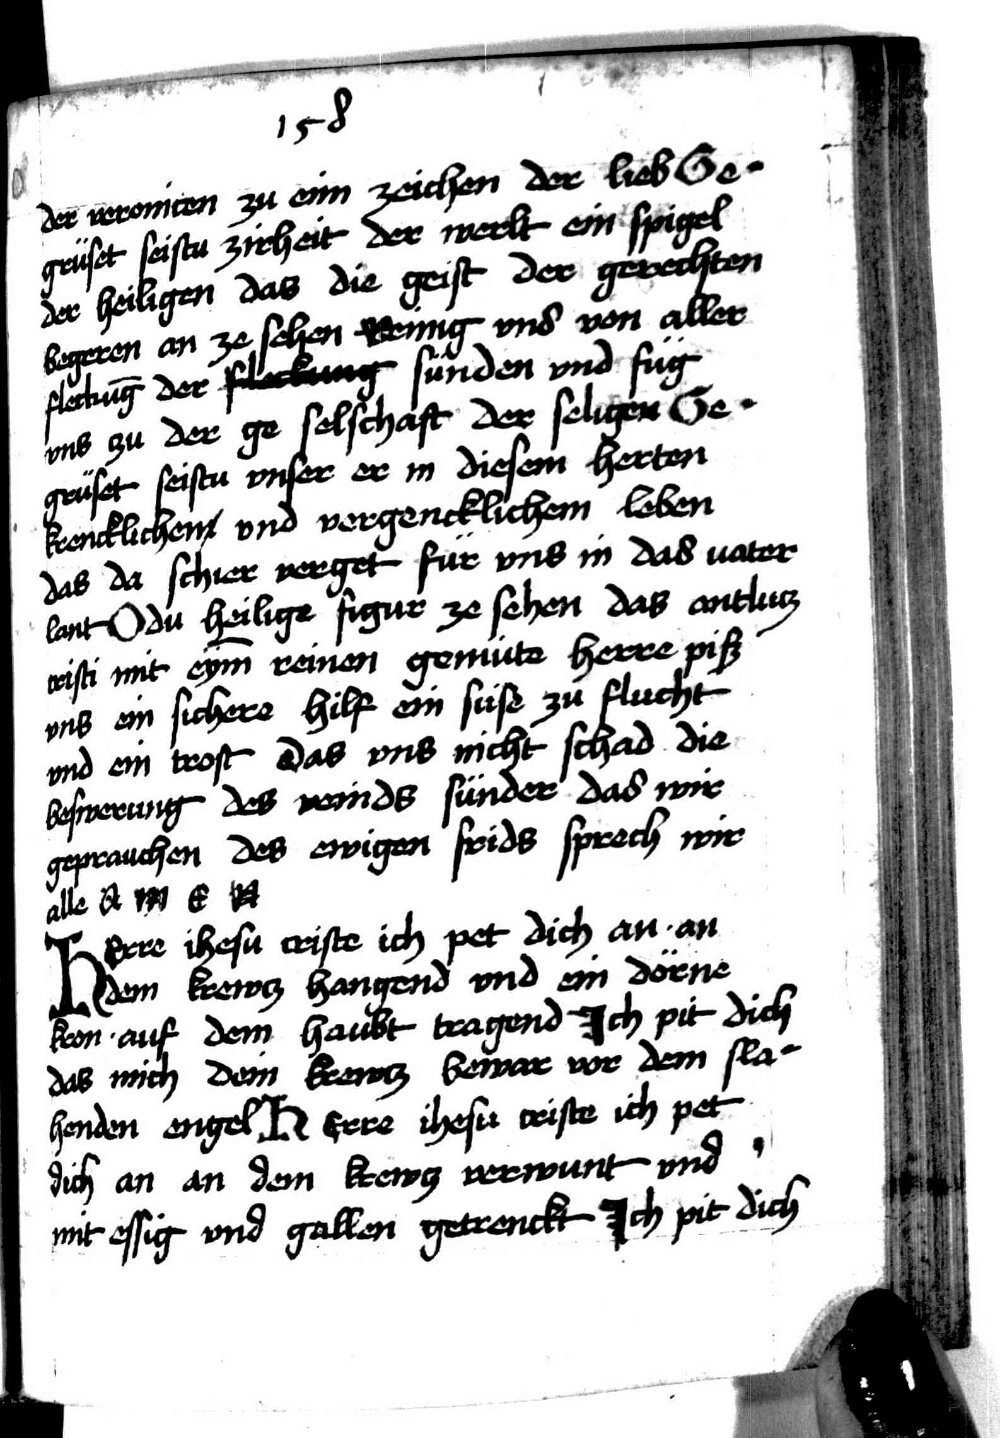 158
der veronicen zu eim zeichen der lieb Ge-
grüset seistu zirheit der werlt ein spigel
der heiligen das die geist der gerechten
begeren an ze sehen Reinig vns von aller
fleckūg der fleckung sünden vnd füg
vns zu der ge selschaft der seligen Ge-
grüset seistu vnser er in diesem herten
krencklichem vnd vergencklichem leben
das da schier verget für vns in das vater
lant O du heilige figur ze sehen das antlucz
cristi mit eym reinen gemüte herre piß
vns ein sichere hilf ein süse zu flucht
vnd ein trost Das vns nicht schad die
beswerung des veinds sünder das wir
geprauchen des ewigen frids sprech wir
alle A M E N
HErre ihesu criste ich pet dich an · an
dem krewcz hangend vnd ein dörne
kron · auf dem haubt tragend Ich pit dich
das mich dein krewcz bewar vor dem sla-
henden engel HErre ihesu criste ich pet
dich an an dem krewcz verwunt vnd
mit essig vnd gallen getrenckt Ich pit dich